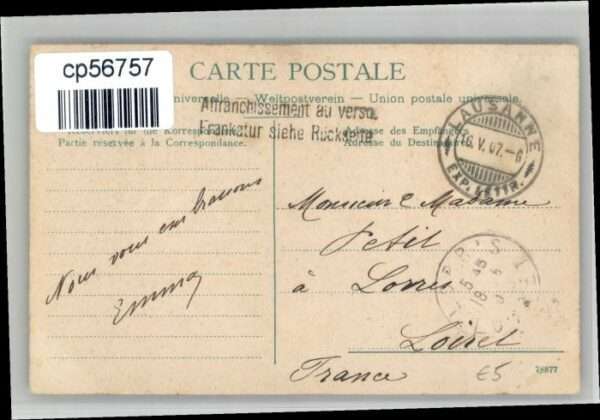 cp56757
CARTE POSTALE
universelle. — Weltpostverein — Union postale universelle.
Affranchissement au verso.
Frankatur siehe Rückseite
Partie réservée à la Correspondance.
Adresse des Empfängers.
Adresse du Destinataire.
LAUSANNE
V. 07. - 6
EXP. LETTR.
Nous vous
Emma
Monsieur & Madame
Petit
à Lorris
Loiret
France
PARIS
78877
€5